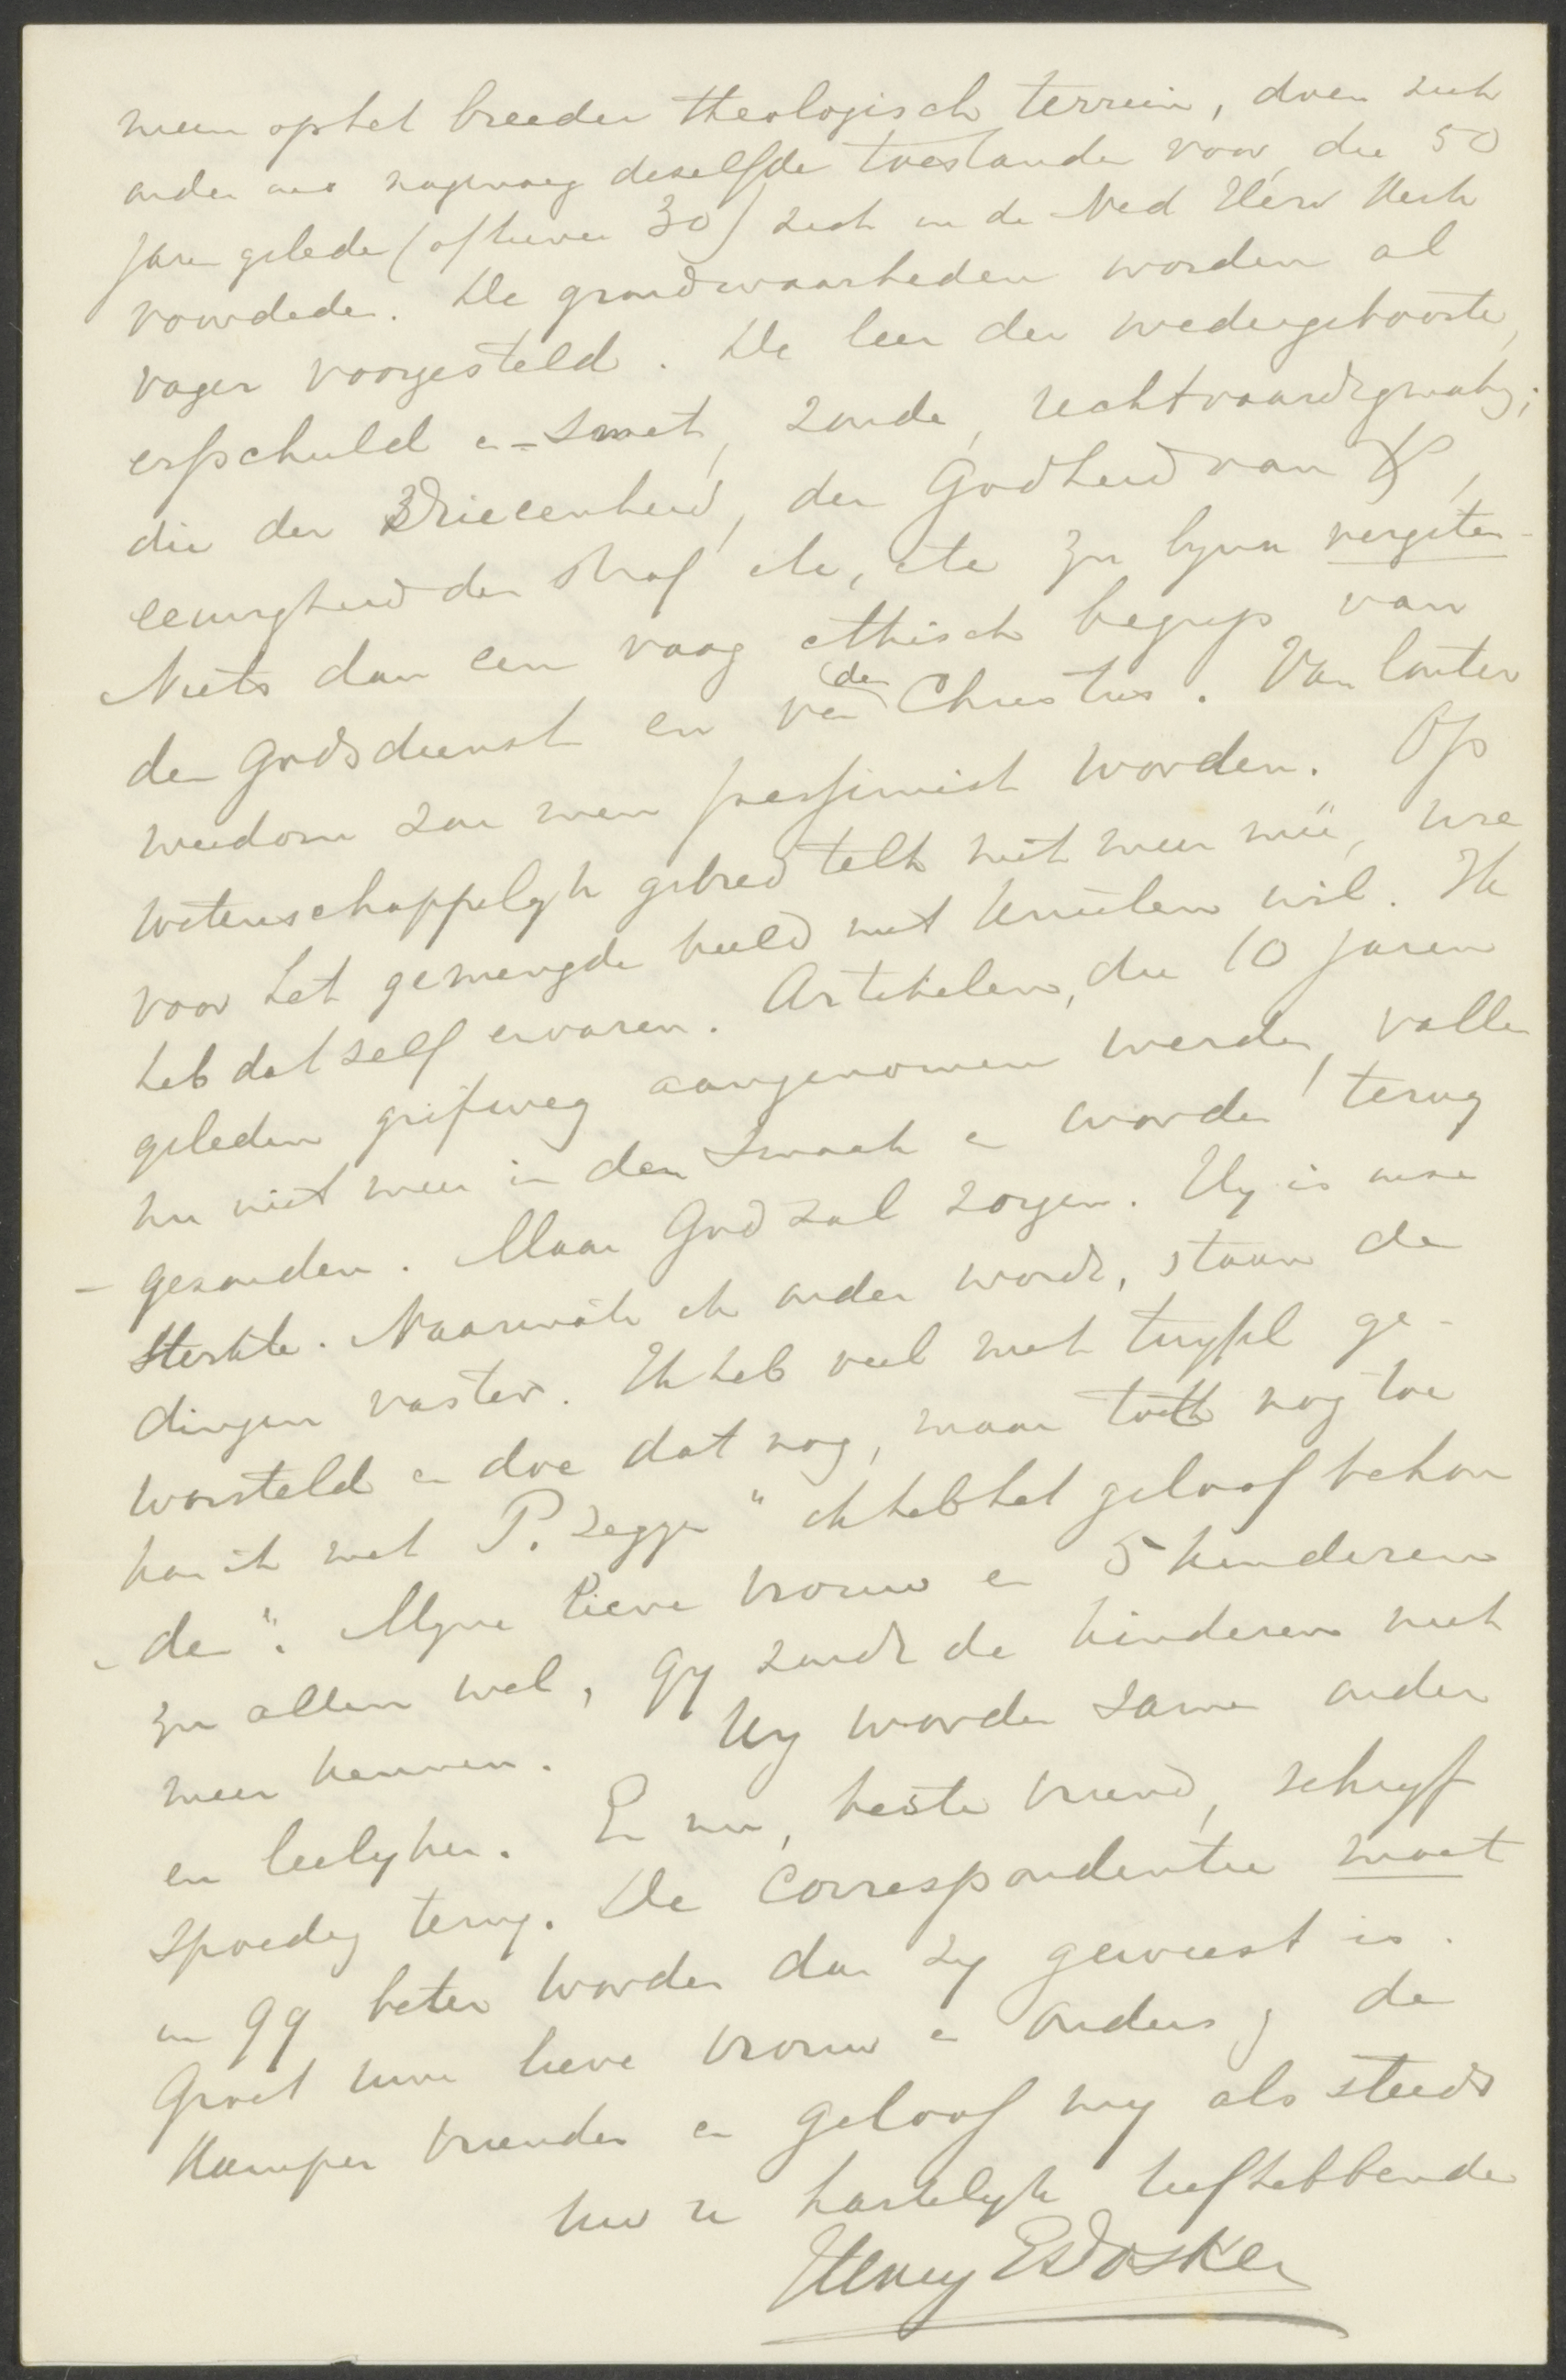 meer op het breeder theologisch terrein, doen zich
onder ons nagenoeg dezelfde toestanden voor, die 50
jaar geleden (of liever 30) zich in de Ned Herv Kerk
voordeden. De grondwaarheden worden al
vager voorgesteld. De leer der wedergeboorte,
erfschuld en -smet, zonde, rechtvaardigmakg;
die der Drieeenheid, der Godheid van
eeuwigheid der straf etc, etc zyn byna vergeten-
Niets dan een vaag ethisch begrip van
den Godsdienst en van (den Christus. Van louter
weedom zou men pessimist worden. Op
wetenschappelyk gebied telt niet meer mee, wie
voor het gemengde beeld niet knielen wil. Ik
heb dat zelf ervaren. Artikelen, die 10 jaren
geleden grifweg aangenomen werden, vallen
nu niet meer in den smaak en worden terug
- gezonden. Maar God zal zorgen. Hy is onze
Sterkte. Naarmate ik ouder word, staan de
dingen vaster. Ik heb veel met twyfel ge-
worsteld en doe dat nog, maar tott nog toe
kan ik met P. zeggen "ik heb het geloof behou
- den". Myne lieve vrouw en 5 kinderen
zyn allen wel, gy zoudt de kinderen niet
meer kennen. Wy worden samen ouder
en leelyker. En nu, beste vriend, schryf
spoedig terug. De Correspondentie moet
in 99 beter worden dan zy geweest is.
Groet uwe lieve vrouw en ouders, de
Kamper vrienden en geloof my als steeds
uw zo hartelyk liefhebbende
Henry E Dosker